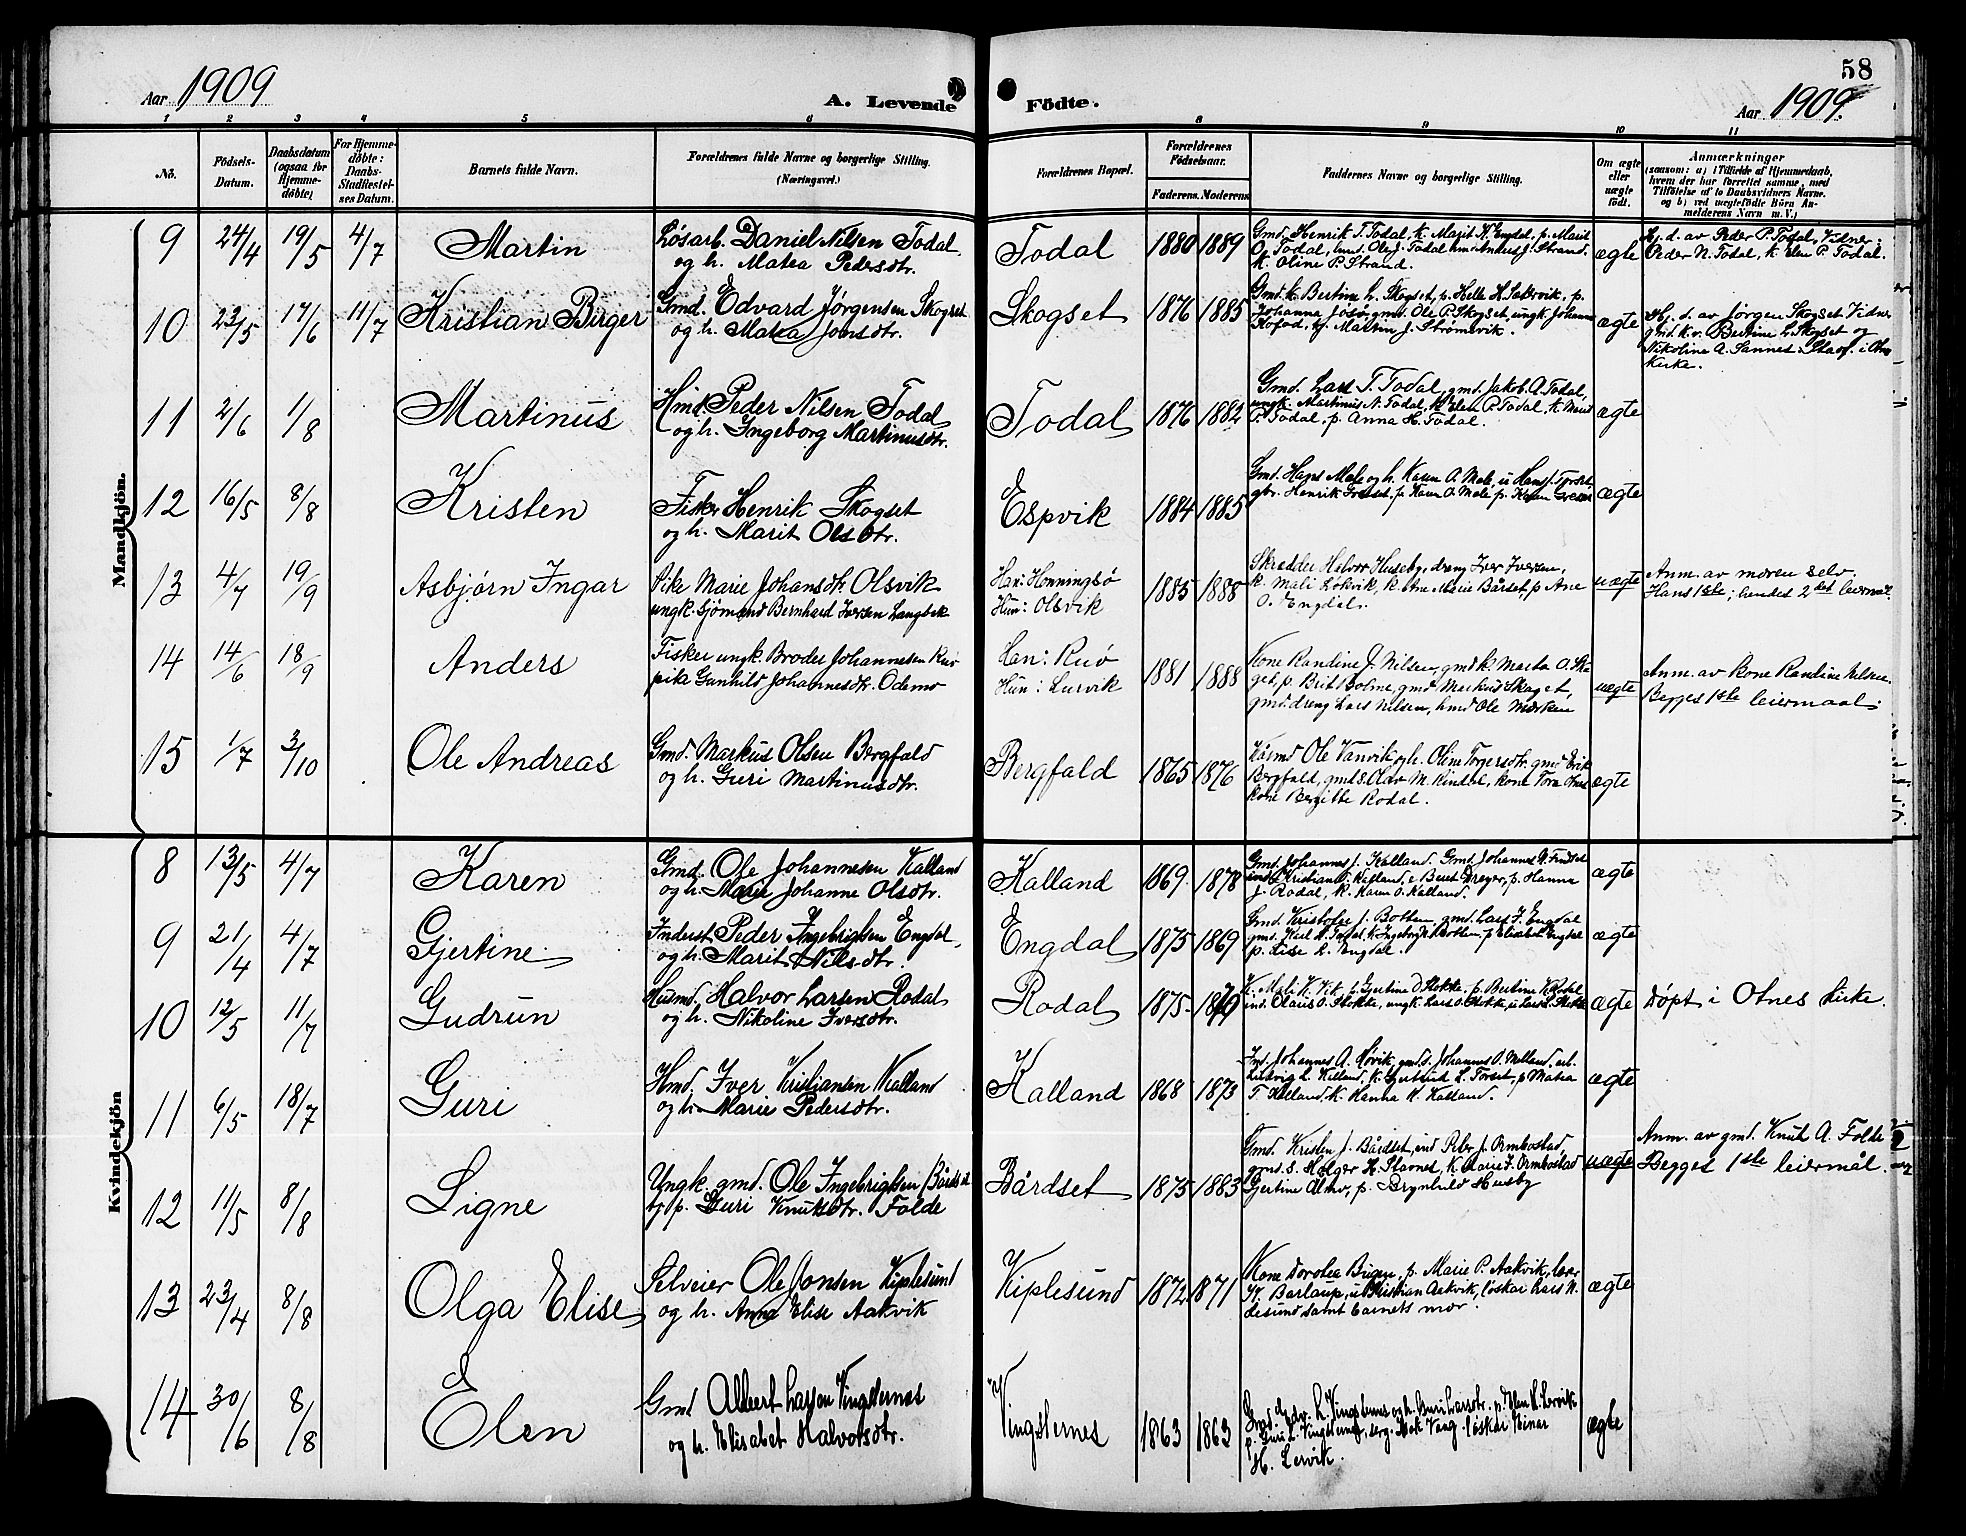 58
Aar 1909
A. Levende Födte.
Aar 1909.
1 2 3 4 5 6 8 9 10 11
No.
Födsels-Datum.
Daabsdatum (ogsaa for Hjemme-döbte)
For Hjemme-döbte: Daabs-Stadfæstel-ses Datum.
Barnets fulde Navn.
Forældrenes fulde Navne og borgerlige Stilling.
(Næringsvei.)
Forældrenes Bopæl.
Forældrenes Födselsaar.
Faderens. Moderens.
Faddernes Navne og borgerlige Stilling.
Om ægte eller uægte födt.
Anmærkninger
(saasom: a) i Tilfælde af Hjemmedaab,
hvem der har forrettet samme, med
Tilföielse af to Daabsvidners Navne.
og b) ved uægtefödte Börn An-
melderens Navn m. V.)
Mandkjön.
9 24/4 19/5 4/7 Martin
Løsarb. Daniel Nilsen Todal
og h. Matea Pedersdtr.
Todal 1880 1889
Gmd. Henrik T. Todal, k. Marit K. Engdal, p. Marit
O. Todal, hmd. Ole J. Todal, hmd Anders J. Strand.
k. Oline P. Strand.
ægte
Hj. d. av Peder P. Todal, Vidner:
Peder N. Todal, k. Elen P. Todal.
10 23/5 17/6 11/7 Kristian Birger
Gmd. Edvard Jørgensen Skogset
og h. Matea Joersdtr.
Skogset 1876 1885
Gmd. k. Bertine L. Skogset, p. Helle H. Sattrvik, p.
Johanna Josø, gmd. Ole P. Skogset, ungk. Johannes
Kofoed, tj. Martin J. Strømsvik.
ægte
Hj. d. av Jørgen Skogset Vidner
gmd. k. v. Bertine L. Skogset og
Nikoline A. Sannes. Stadf. i Otnes
kirke.
11 2/6 1/8 Martinus
Hmd. Peder Nilsen Todal
og h. Ingeborg Martinusdtr.
Todal 1876 1882
Gmd. Lars T. Todal, gmd. Jakob A. Todal,
ungk. Martinus N. Todal, k. Elen P. Todal, k. Marit
P. Todal, p. Anna H. Todal.
ægte
12 16/5 8/8 Kristen
Fisker Henrik Skogset
og h. Marit Olsdtr.
Espvik 1884 1885
Gmd. Hans Male og h. Karen A. Male, u. Hans J.
gbr. Henrik p. Karen O. Male p. Karen
ægte
13 4/7 19/9 Asbjørn Ingar
Pike Marie Johansdtr. Olsvik
ungk. Sjömand Bernhard Iversen Langbek
Han: Honningsö
Hun: Olsvik
1885 1888
Skrædder Halvor Huseby, dreng Iver Iversen,
k. Mali Løkvik, k. Ane Marie Bårset, p. Ane
O. Engdal.
uægte
Anm. av moren selv.
Hans 1ste; hendes 2det leiermål.
14 14/6 18/9 Anders
Fisker ungk. Broder Johannesen Ruø
pike Gunhild Johannesdtr. Odemo
Han: Ruø
Hun: Lurvik
1881 1888
Kone Randine J. Nilsen, gmd. k. Marta O. Ska-
get, p. Brit Bolme, gmd Markus Skaget,
gmd. dreng Lars Nilsen, hmd Ole Mærken
uægte
Anm. av kone Randine Nilsen.
Begges 1ste leiermaal.
15 1/7 3/10 Ole Andreas
Gmd. Markus Olsen Bergfald
og h. Guri Martinusdtr.
Bergfald 1865 1876
Ole Vanvik og h. Oline Torgersdtr. gmd Erik
Bergfald, gmd. s. Olav M. Kindal, kone Tora
kone Bergitte Rodal.
ægte
Kvindekjön
8 13/5 4/7 Karen
Gmd. Ole Johannesen Kalland
og h. Marie Johanne Olsdtr.
Kalland 1869. 1878
Gmd. Johannes J. Kalland. Gmd. Johannes
Kristian O. Kalland, e Beret Dreyer, p. Hanna
J. Rodal, k. Karen O. Kalland.
ægte
9 21/4 4/7 Gjertine
Inderst Peder Ingebrigtsen Engdal,
og h. Marit Nilsdtr.
Engdal 1875 1869
Gmd. Kristofer J. Botten, gmd. Lars I. Engdal
gmd. Karl K. Todal, k. Ingeborg K. Botten, p. Elisabet Engdal
p. Lise L. Engdal.
ægte
10 12/5 11/7 Gudrun
Husmd. Halvor Larsen Rodal
og h. Nikoline Iversdtr.
Rodal 1875 1879
K. Mali K. Vik, p. Gjertine O. Stokke, p. Bertine K. Rodal
ind. Olaus O. Stokke, ungk. Lars O. Stokke, u. Lars L. Stokke
ægte
Døpt i Otnes kirke.
11 6/5 18/7 Guri
Hmd. Iver Kristiansen Kalland
og h. Marie Pedersdtr.
Kalland 1868 1873
Ind. Johannes A. Søvik, gmd. s. Johannes O. Melland, arb.
Ludvig L. Kalland, k. Gjertrud L. Torset, p. Matea
T. Kalland, k. Hanna K. Kalland.
ægte
12 11/5 8/8 Signe
Ungk. gmd. Ole Ingebrigtsen Bårdset
tj. p. Guri Knutsdtr. Folde
Bårdset 1875 1883
Gmd. Kristen J. Bårdset, ind. Peter J. Ormbostad
gmd. s. Holger H. Stavnes, k. Marie J. Ormbostad
Gjertine Alvø, p. Brynhild Husby
uægte
Anm. av gmd. Knut A. Folde
Begges 1ste leiermål.
13 23/4 8/8 Olga Elise
Selveier Ole Jonsen Kiplesund
og h. Anna Elise Aakvik
Kiplesund 1872 1871
Kone Dorotea Bugen, p. Marie P. Aakvik, lærer
Barlaup, u. Kristian Aakvik, løskar Lars K.
desund samt barnets mor.
ægte
14 30/6 8/8 Elen
Gmd Albert Larsen Vingsternes
og h. Elisabet Halvorsdtr.
Vingsternes 1863 1863
Gmd. Edv. R. Vingsternes og h. Guri Larsdtr. p. Elen H. Lervik
p. Guri L. Vingsternes, serg. Isak Vaag. løskar Einar
H. Lervik.
ægte